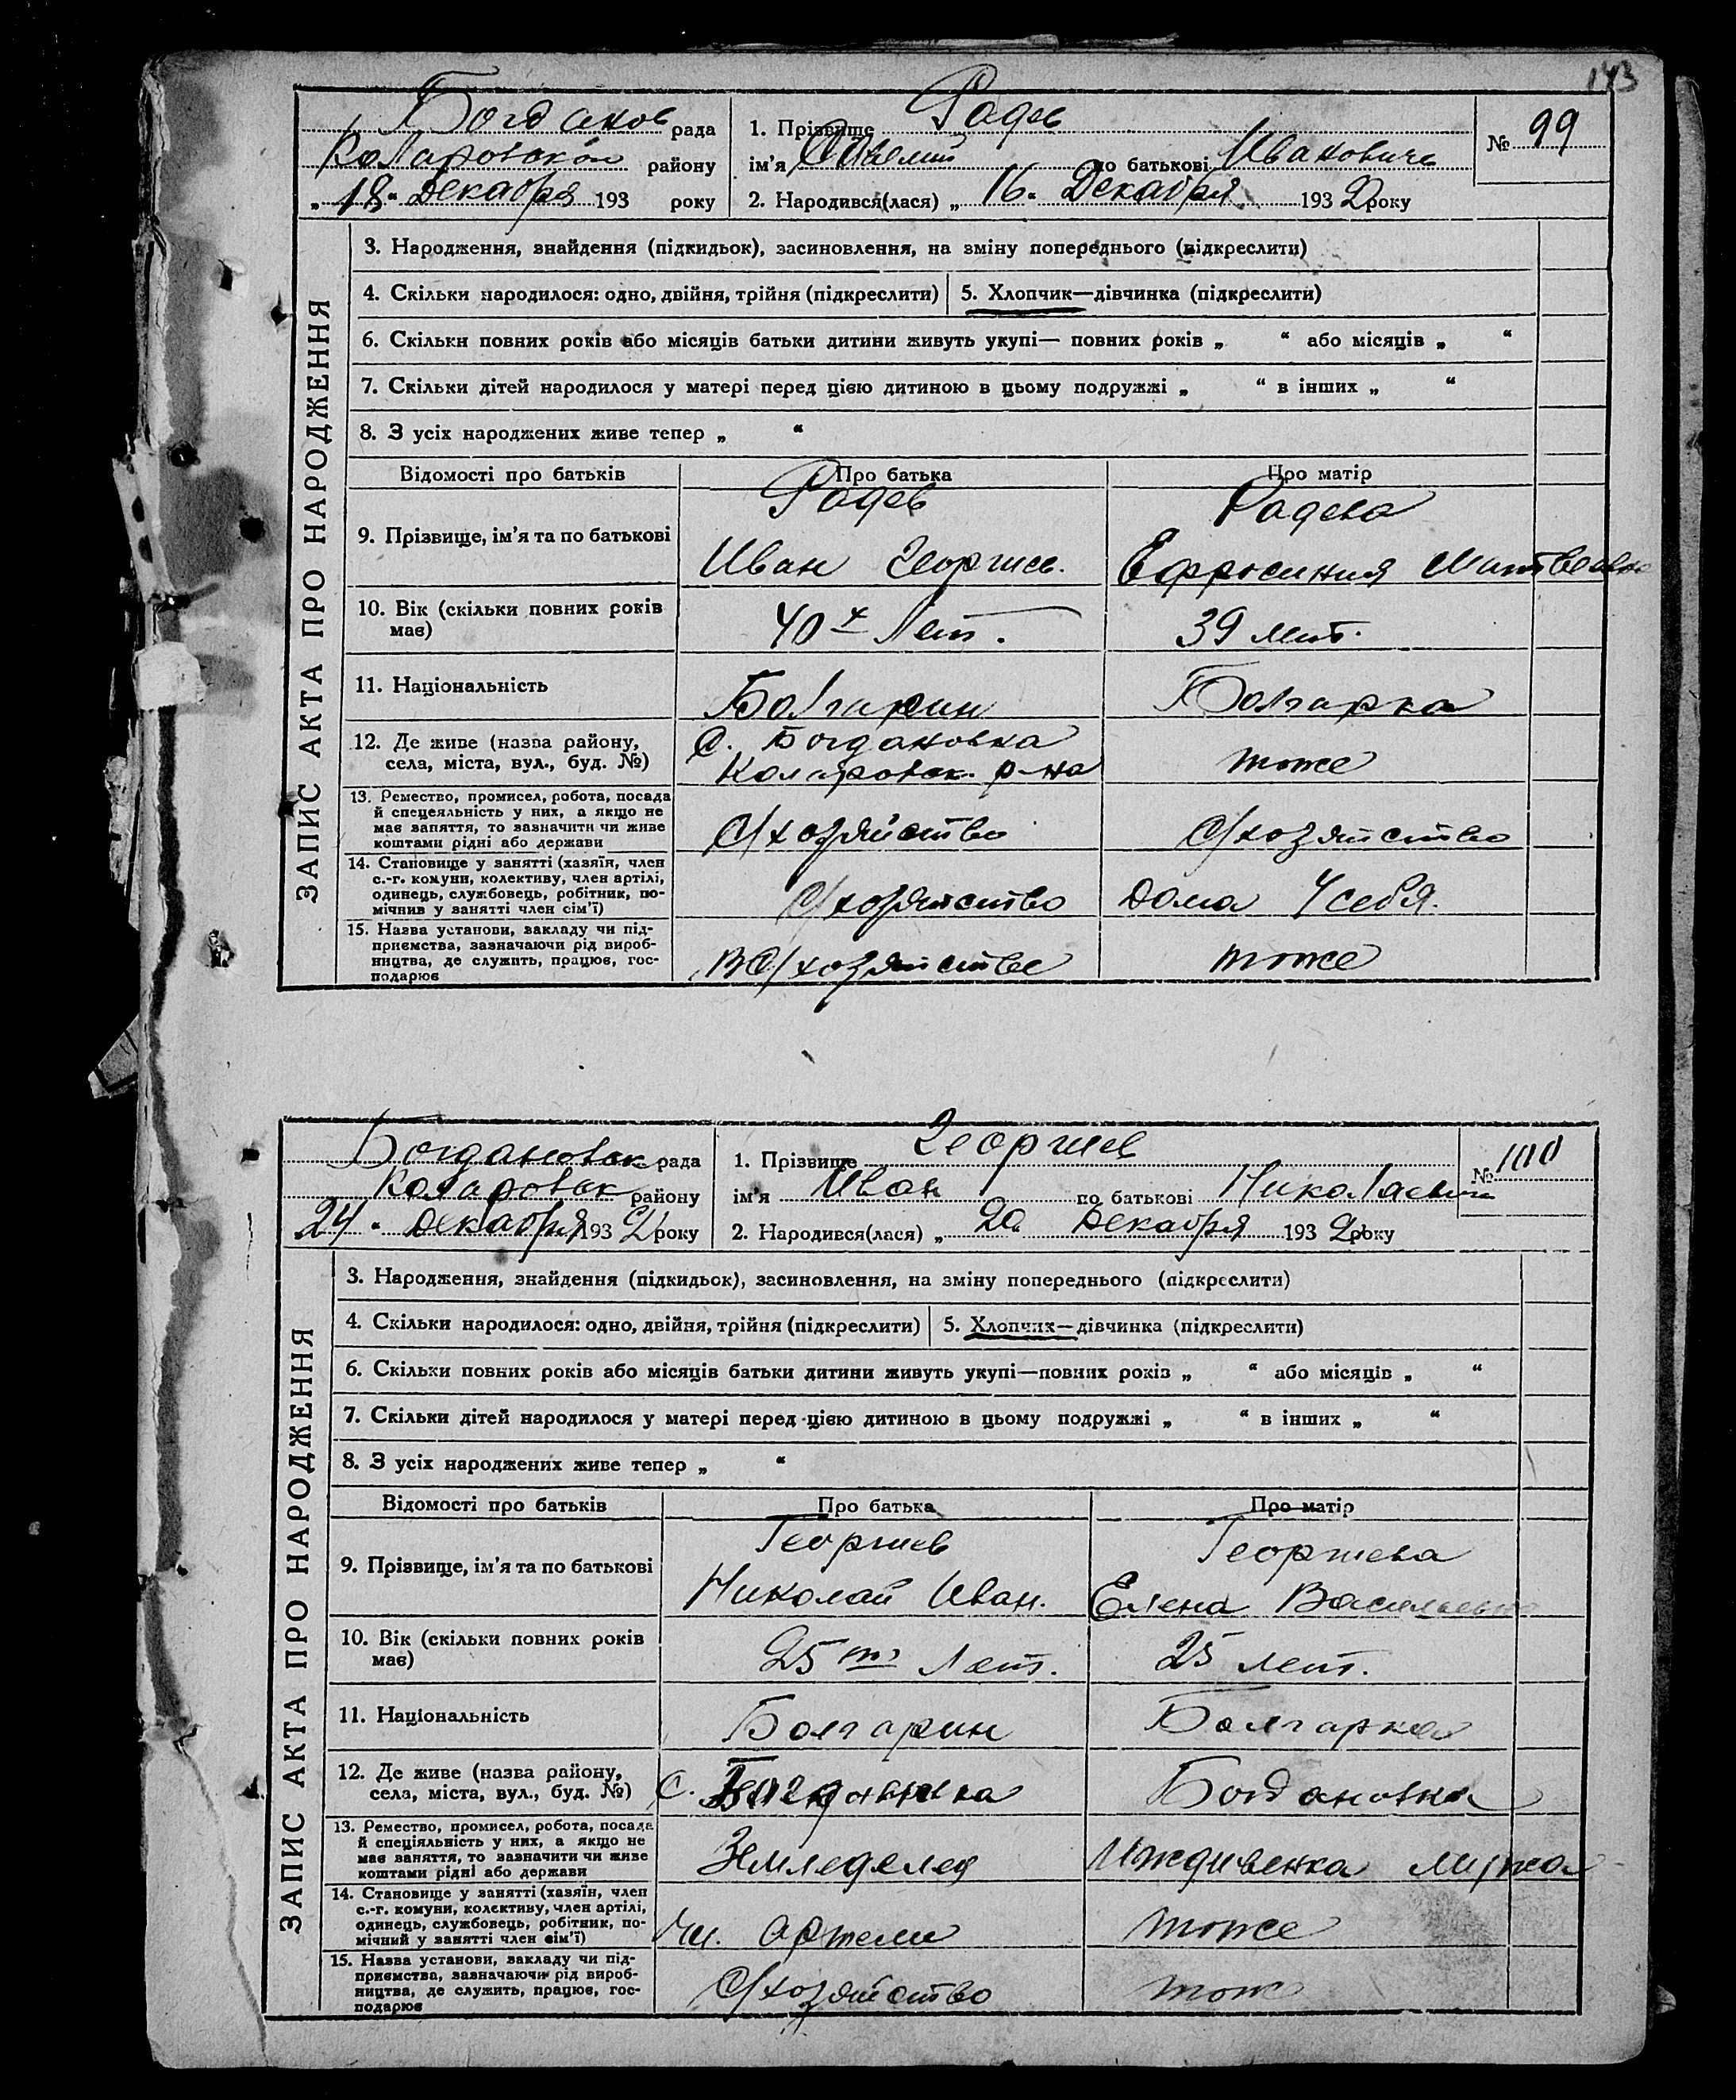 143
Богданов рада
Коларовской району
„18“ Декабря 193 року
1. Прізвище Радев
ім'я по батькові Иванович
2. Народився(лася) „16“ Декабря 1932 року
№ 99
ЗАПИС АКТА ПРО НАРОДЖЕННЯ
3. Народження, знайдення (підкидьок), засиновлення, на зміну попереднього (підкреслити)
4. Скільки народилося: одно, двійня, трійня (підкреслити)
5. Хлопчик—дівчинка (підкреслити)
6. Скільки повних років або місяців батьки дитини живуть укупі— повних років „ “ або місяців „ “
7. Скільки дітей народилося у матері перед цією дитиною в цьому подружжі „ “ в інших „ “
8. З усіх народжених живе тепер „ “
Відомості про батьків Про батька Про матір
9. Прізвище, ім'я та по батькові
Радев
Иван Георгиев.
Радева
Ефросиния Матвеевна
10. Вік (скільки повних років
має)
40х Лет.
39 лет.
11. Національність
Болгарин
Болгарка
12. Де живе (назва району,
села, міста, вул., буд. №)
С. Богдановка
Коларовск. р-на
тоже
13. Ремество, промисел, робота, посада
й спецеяльність у них, а якщо не
має заняття, то зазначити чи живе
коштами рідні або держави
С/хозяйство
С/хозяйство
14. Становище у занятті (хазяїн, член
с.-г. комуни, колективу, член артілі,
одинець, службовець, робітник, по-
мічнив у занятті член сім'ї)
С/хозяйство
Дома У себя.
15. Назва установи, закладу чи під-
приємства, зазначаючи рід вироб-
ництва, де служить, працює, гос-
подарює
В С/хозяйстве
тоже
Богдановск рада
Коларовск району
24 “ Декабря 1932 року
1. Прізвище Георгиев
ім'я Иван по батькові Николаевич
2. Народився(лася) „20 Декабря 1932 року
№ 100
ЗАПИС АКТА ПРО НАРОДЖЕННЯ
3. Народження, знайдення (підкидьок), засиновлення, на зміну попереднього (підкреслити)
4. Скільки народилося: одно, двійня, трійня (підкреслити)
5. Хлопчик—дівчинка (підкреслити)
6. Скільки повних років або місяців батьки дитини живуть укупі—повних років „ “ або місяців „ “
7. Скільки дітей народилося у матері перед цією дитиною в цьому подружжі „ “ в інших „ “
8. З усіх народжених живе тепер „ “
Відомості про батьків Про батька Про матір
9. Прізвище, ім'я та по батькові
Георгиев
Николай Иван.
Георгиева
Елена Васильевна
10. Вік (скільки повних років
має)
25ть Лет.
25 лет.
11. Національність
Болгарин
Болгарка
12. Де живе (назва району,
села, міста, вул., буд. №)
С. Богдановка
Богдановка
13. Ремество, промисел, робота, посада
й спеціяльність у них, а якщо не
має заняття, то зазначити чи живе
коштами рідні або держави
Земледелец
Иждивенка мужа
14. Становище у занятті (хазяїн, член
с.-г. комуни, колективу, член артілі,
одинець, службовець, робітник, по-
мічний у занятті член сім'ї)
Чл. Артели
тоже
15. Назва установи, закладу чи під-
приємства, зазначаючи рід вироб-
ництва, де служить, працює, гос-
подарює
С/хозяйство
тож